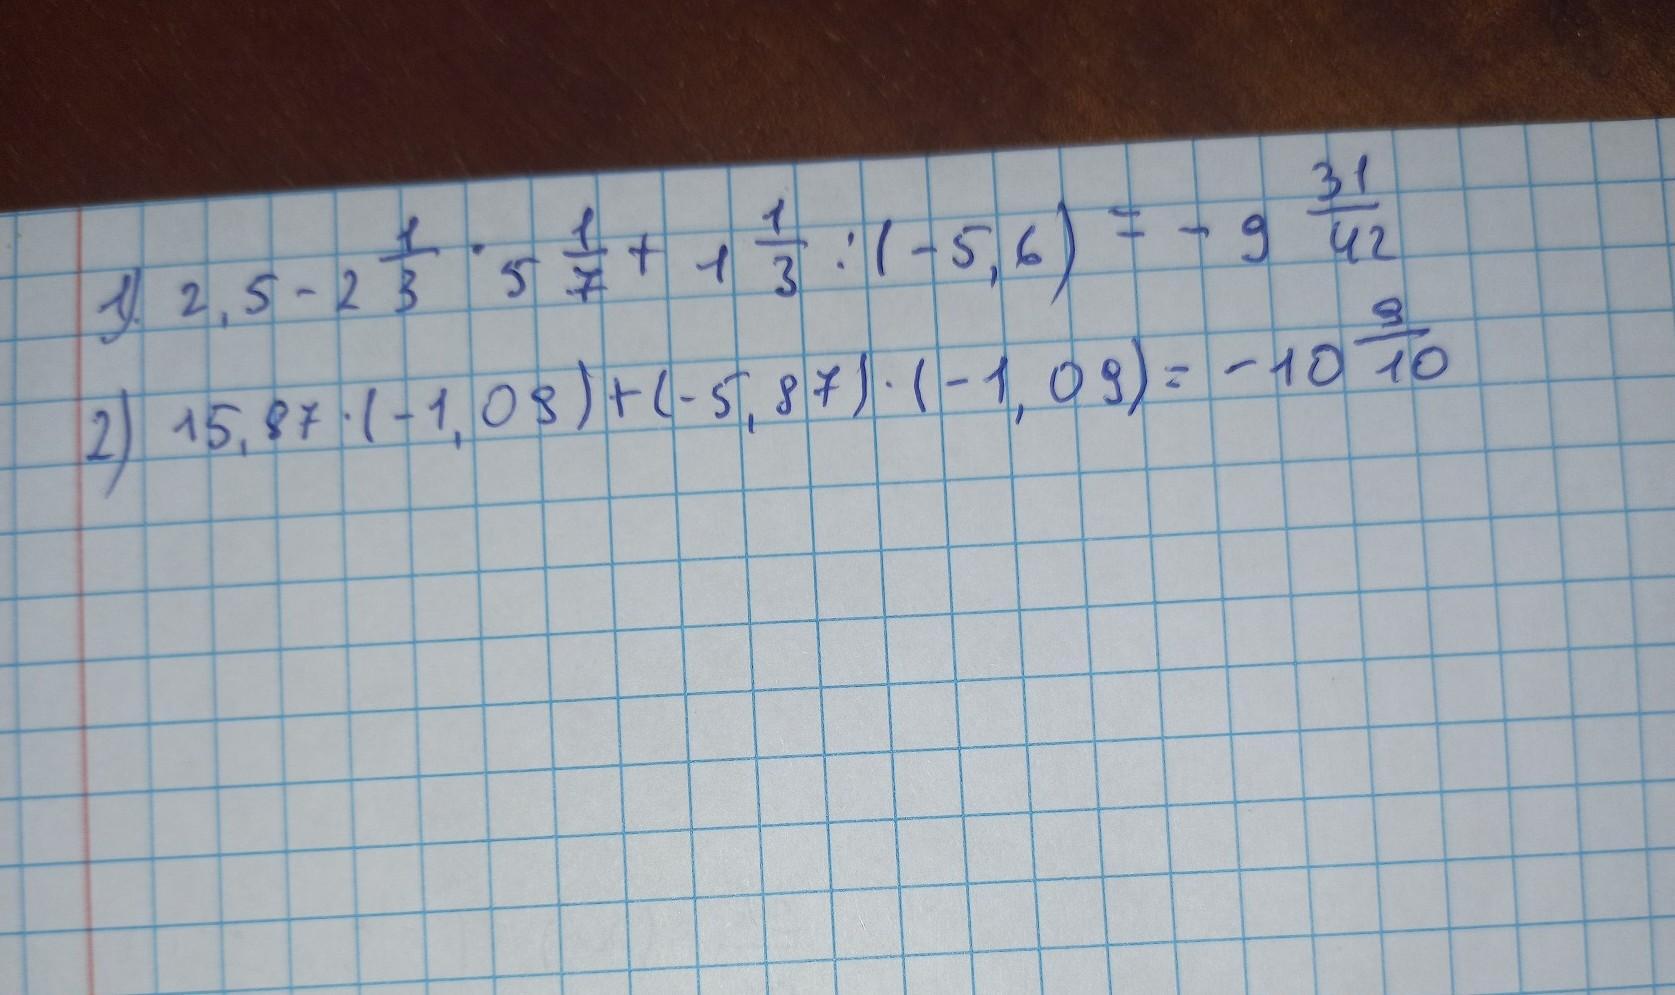 1). 2,5 - 2 1/3 · 5 1/7 + 1 1/3 : (-5,6) = -9 31/42
2) 15,87 · (-1,09) + (-5,87) · (-1,09) = -10 9/10